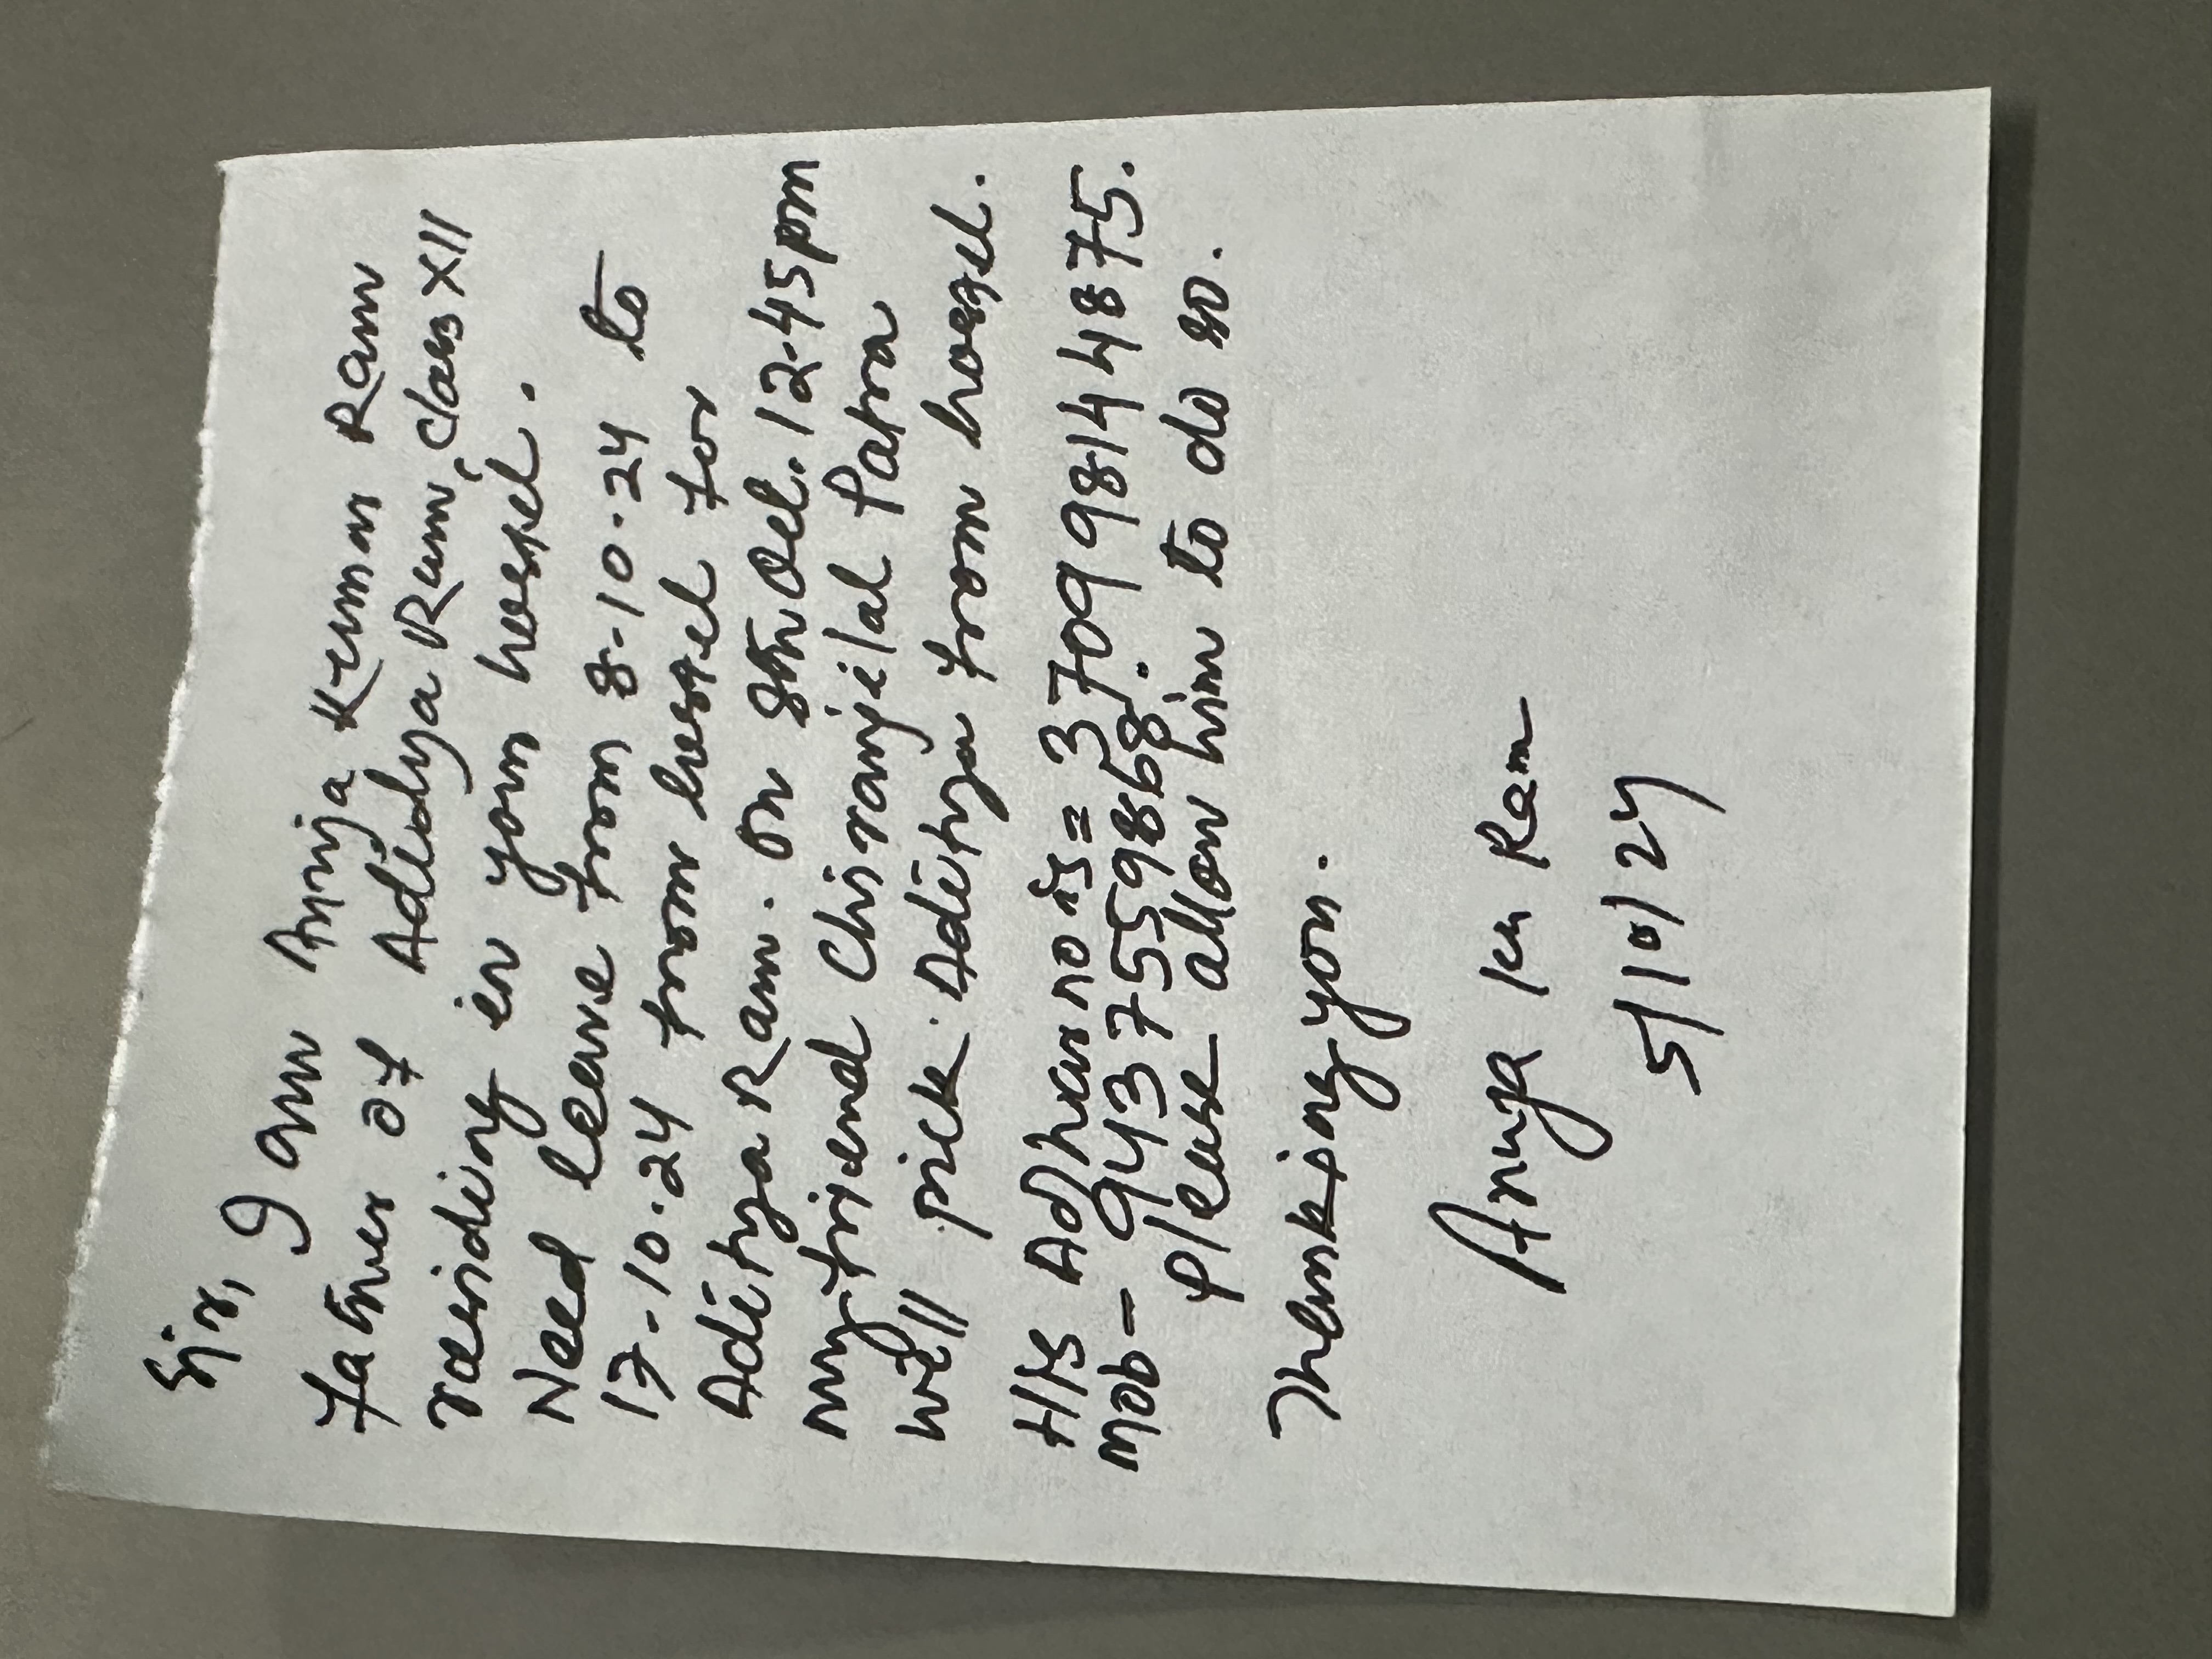 Sir,
I am Anuja Kumar Ram
Father of Adidya Ram, Class XII
residing in your hostel.
Need leave from 8-10-24 to
17-10.24 from hostel for
Aditya Ram. on 8th Oct. 12-45pm
my friend Chiranjilal Patra
will pick Aditya from hostel.
His Adhar no is = 3709 9814 4875.
Mob- 9437559868.
please allow him to do so.
Thanking you.
Anuja Kr Ram
5/10/24